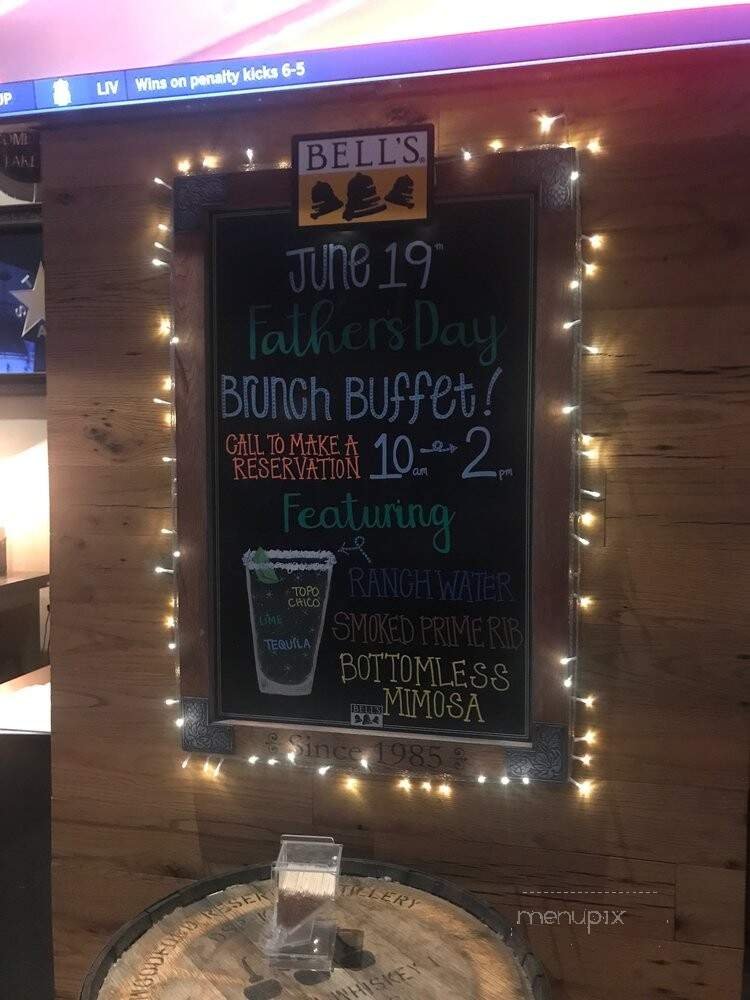 LIV Wins on penalty kicks 6-5
BELL'S
June 19th
Father's Day
Brunch Buffet!
CALL TO MAKE A
RESERVATION
10am → 2pm
Featuring
RANCH WATER
TOPO
CHICO
LIME
TEQUILA
SMOKED PRIME RIB
BOTTOMLESS
MIMOSA
BELL'S
Since 1985
WOODFORD RESERVE DISTILLERY
WHISKEY
menupix